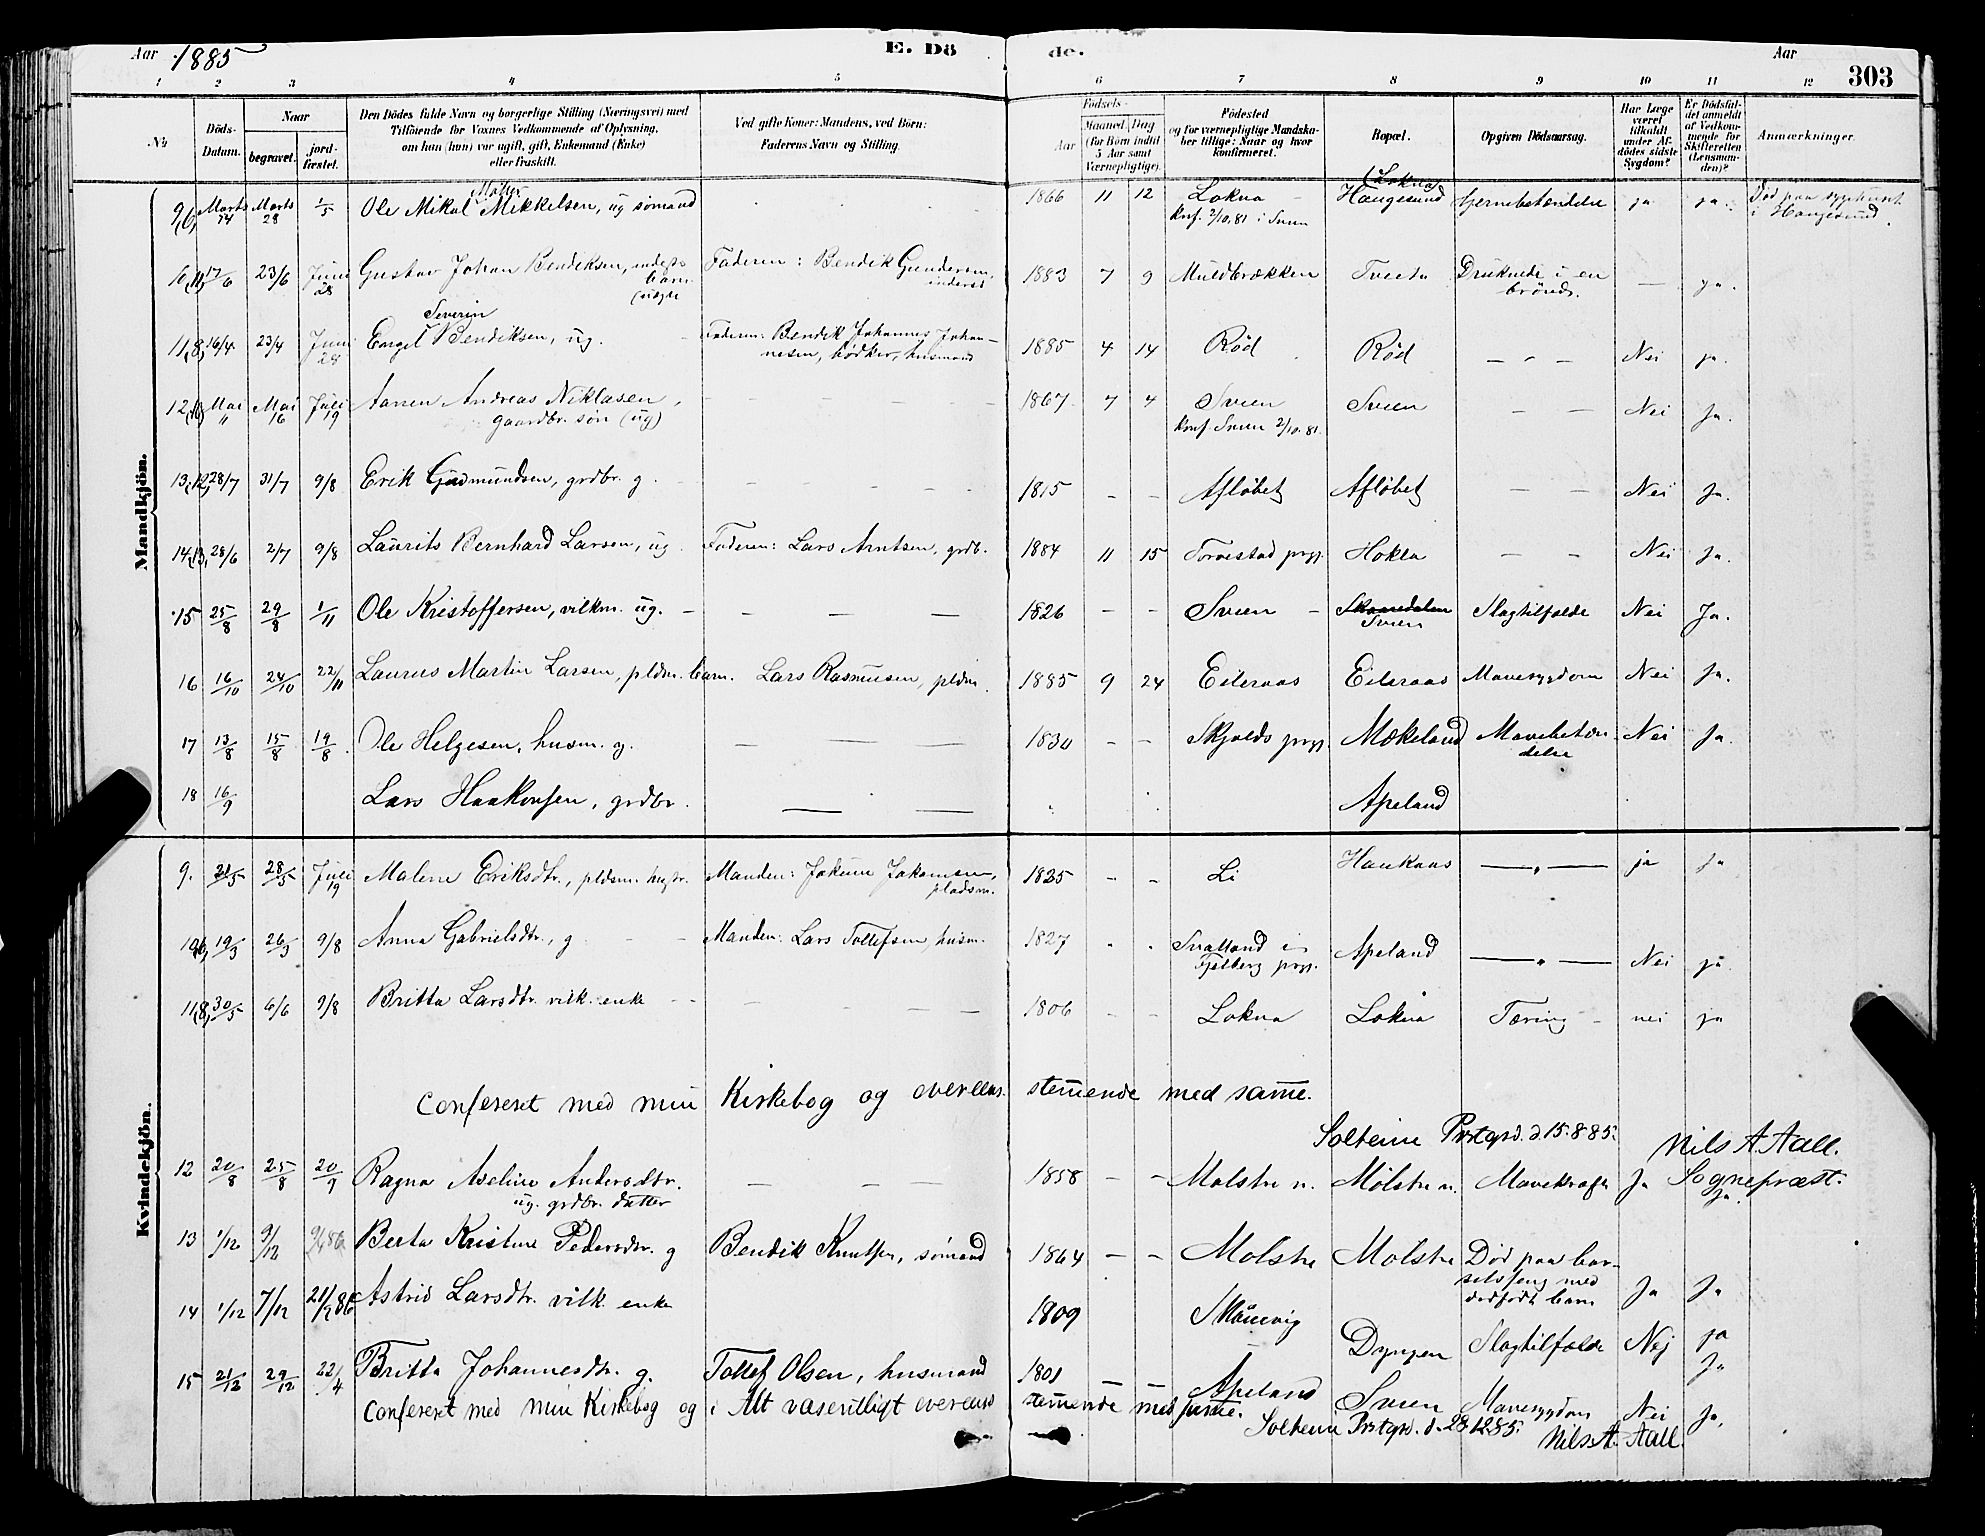 Aar 1885 E. Dö de. Aar 303
1 2 3 4 5 6 7 8 9 10 11 12
No Döds-Datum. Naar begravet. jordfæstet. Den Dödes fulde Navn og borgerlige Stilling (Næringsvei) med Tilföiende for Voxnes Vedkommende af Oplysning, om han (hun) var ugift, gift, Enkemand (Enke) eller fraskilt. Ved gifte Koner: Mandens, ved Börn: Faderens Navn og Stilling. Födsels- Aar Maaned Dag (for Börn indtil 5 Aar samt Værnepligtige). Födested og for værnepligtige Mandskaber tillige: Naar og hvor konfirmeret. Bopæl. Opgiven Dödsaarsag. Har Læge været tilkaldt under Afdödes sidste Sygdom? Er Dödsfaldet anmeldt af Vedkommende for Skifteretten (Lensmanden)? Anmærkninger.
Mandkjön.
9, Marts 24 Marts 28 1/5 Ole Mikal Mikkelsen, ug sømand 1866 11 12 Lokna Haugesund ja ja Død paa sygehuset
knf. 2/10.81 i Sveen i Haugesund.
10, 17/6 23/6 Juni 28 Gustav Johan Bendiksen, Faderen: Bendik Gundersen, 1883 7 9 Muldbrækken Tveita Druknede i en ja.
barn brönd.
Severin
11, 16/4 23/4 Juni 28 Engel Bendiksen, ug. Faderen: Bendik Johannes Johan- 1885 4 14 Röd Röd Nei ja.
nesen, bødker, husmand
12, Mai 11 Mai 16 Juli 19 Aanen Andreas Niklasen, 1867 7 4 Sveen Sveen Nei Ja.
gaardbr. søn (ug) Konf. Sveen 2/10.81.
13, 28/7 31/7 9/8 Erik Gudmundsen, grdbr. g. 1815 - - Afløbet Afløbet Nei Ja.
14, 28/6 2/7 9/8 Laurits Bernhard Larsen, ug. Faderen: Lars Arntsen, grdb. 1884 11 15 Torvestad prgj. Nei Ja.
15 25/8 29/8 1/11 Ole Kristoffersen, vilkm. ug. 1826 - - Sveen Sveen Slagtilfælde Nei Ja.
16 16/10 24/10 22/11 Laurus Martin Larsen, pldm. barn. Lars Rasmusen, pldm. 1885 9 24 Eileraas Eileraas Mavesygdom Nei Ja.
17 13/8 15/8 19/8 Ole Helgesen, husm. g. 1830 - - Skjolds prgj. Mækeland Mavebetæn- Nei Ja.
delse
18 16/9 Lars Haakonsen, grdbr. Apeland
Kvindekjön.
9. 21/5 28/5 Juli 19 Malene Eriksdtr., pldsm. hustr. Manden: Jakum Jakomsen, 1825 - - Li Haukaas ja ja
pladsm.
10, 19/3 26/3 9/8 Anna Gabrielsdtr., g Manden: Lars Tollefsen, husm. 1827 i Apeland Nei ja.
Fjelberg prgj.
11, 30/5 6/6 9/8 Britta Larsdtr. vilk. enke 1806 - - Lokna Lokna Tæring nei ja
Confereret med min Kirkebog og overens- stemende med same.
Solheim Prstgrd. d. 15.8.85. Nils A. Aall.
Sognepræst.
12 20/8 25/8 20/9 Ragna Aseline Andersdtr. 1858 - - Molstre n. Molstre n. Mavekræft Ja Ja.
ug. grdbr. datter
13 1/12 9/12 Berta Kristine Pedersdtr. g Bendik Knutsen, sømand 1864 - - Molstre Molstre Død paa bar-
selsseng med
dødfødt barn Ja Ja
14 1/12 7/12 21/2 86 Astrid Larsdtr. vilk. enke 1809 Skånevig Dyngen Slagtilfælde Nej ja
Ja
15 21/12 29/12 22/4 Britta Johannesdtr. g. Tollef Olsen, husmand 1801 - - Apeland Sveen Mavesygdom Nei Ja.
Confereret med min Kirkebog og i Alt væsentligt overens stemende med same.
Solheim Prstgrd. d. 28.12.85. Nils A. Aall.